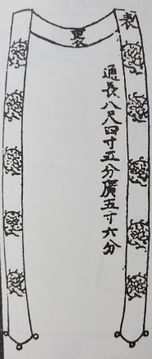 表
通長八尺四寸五分廣五寸六分
裏